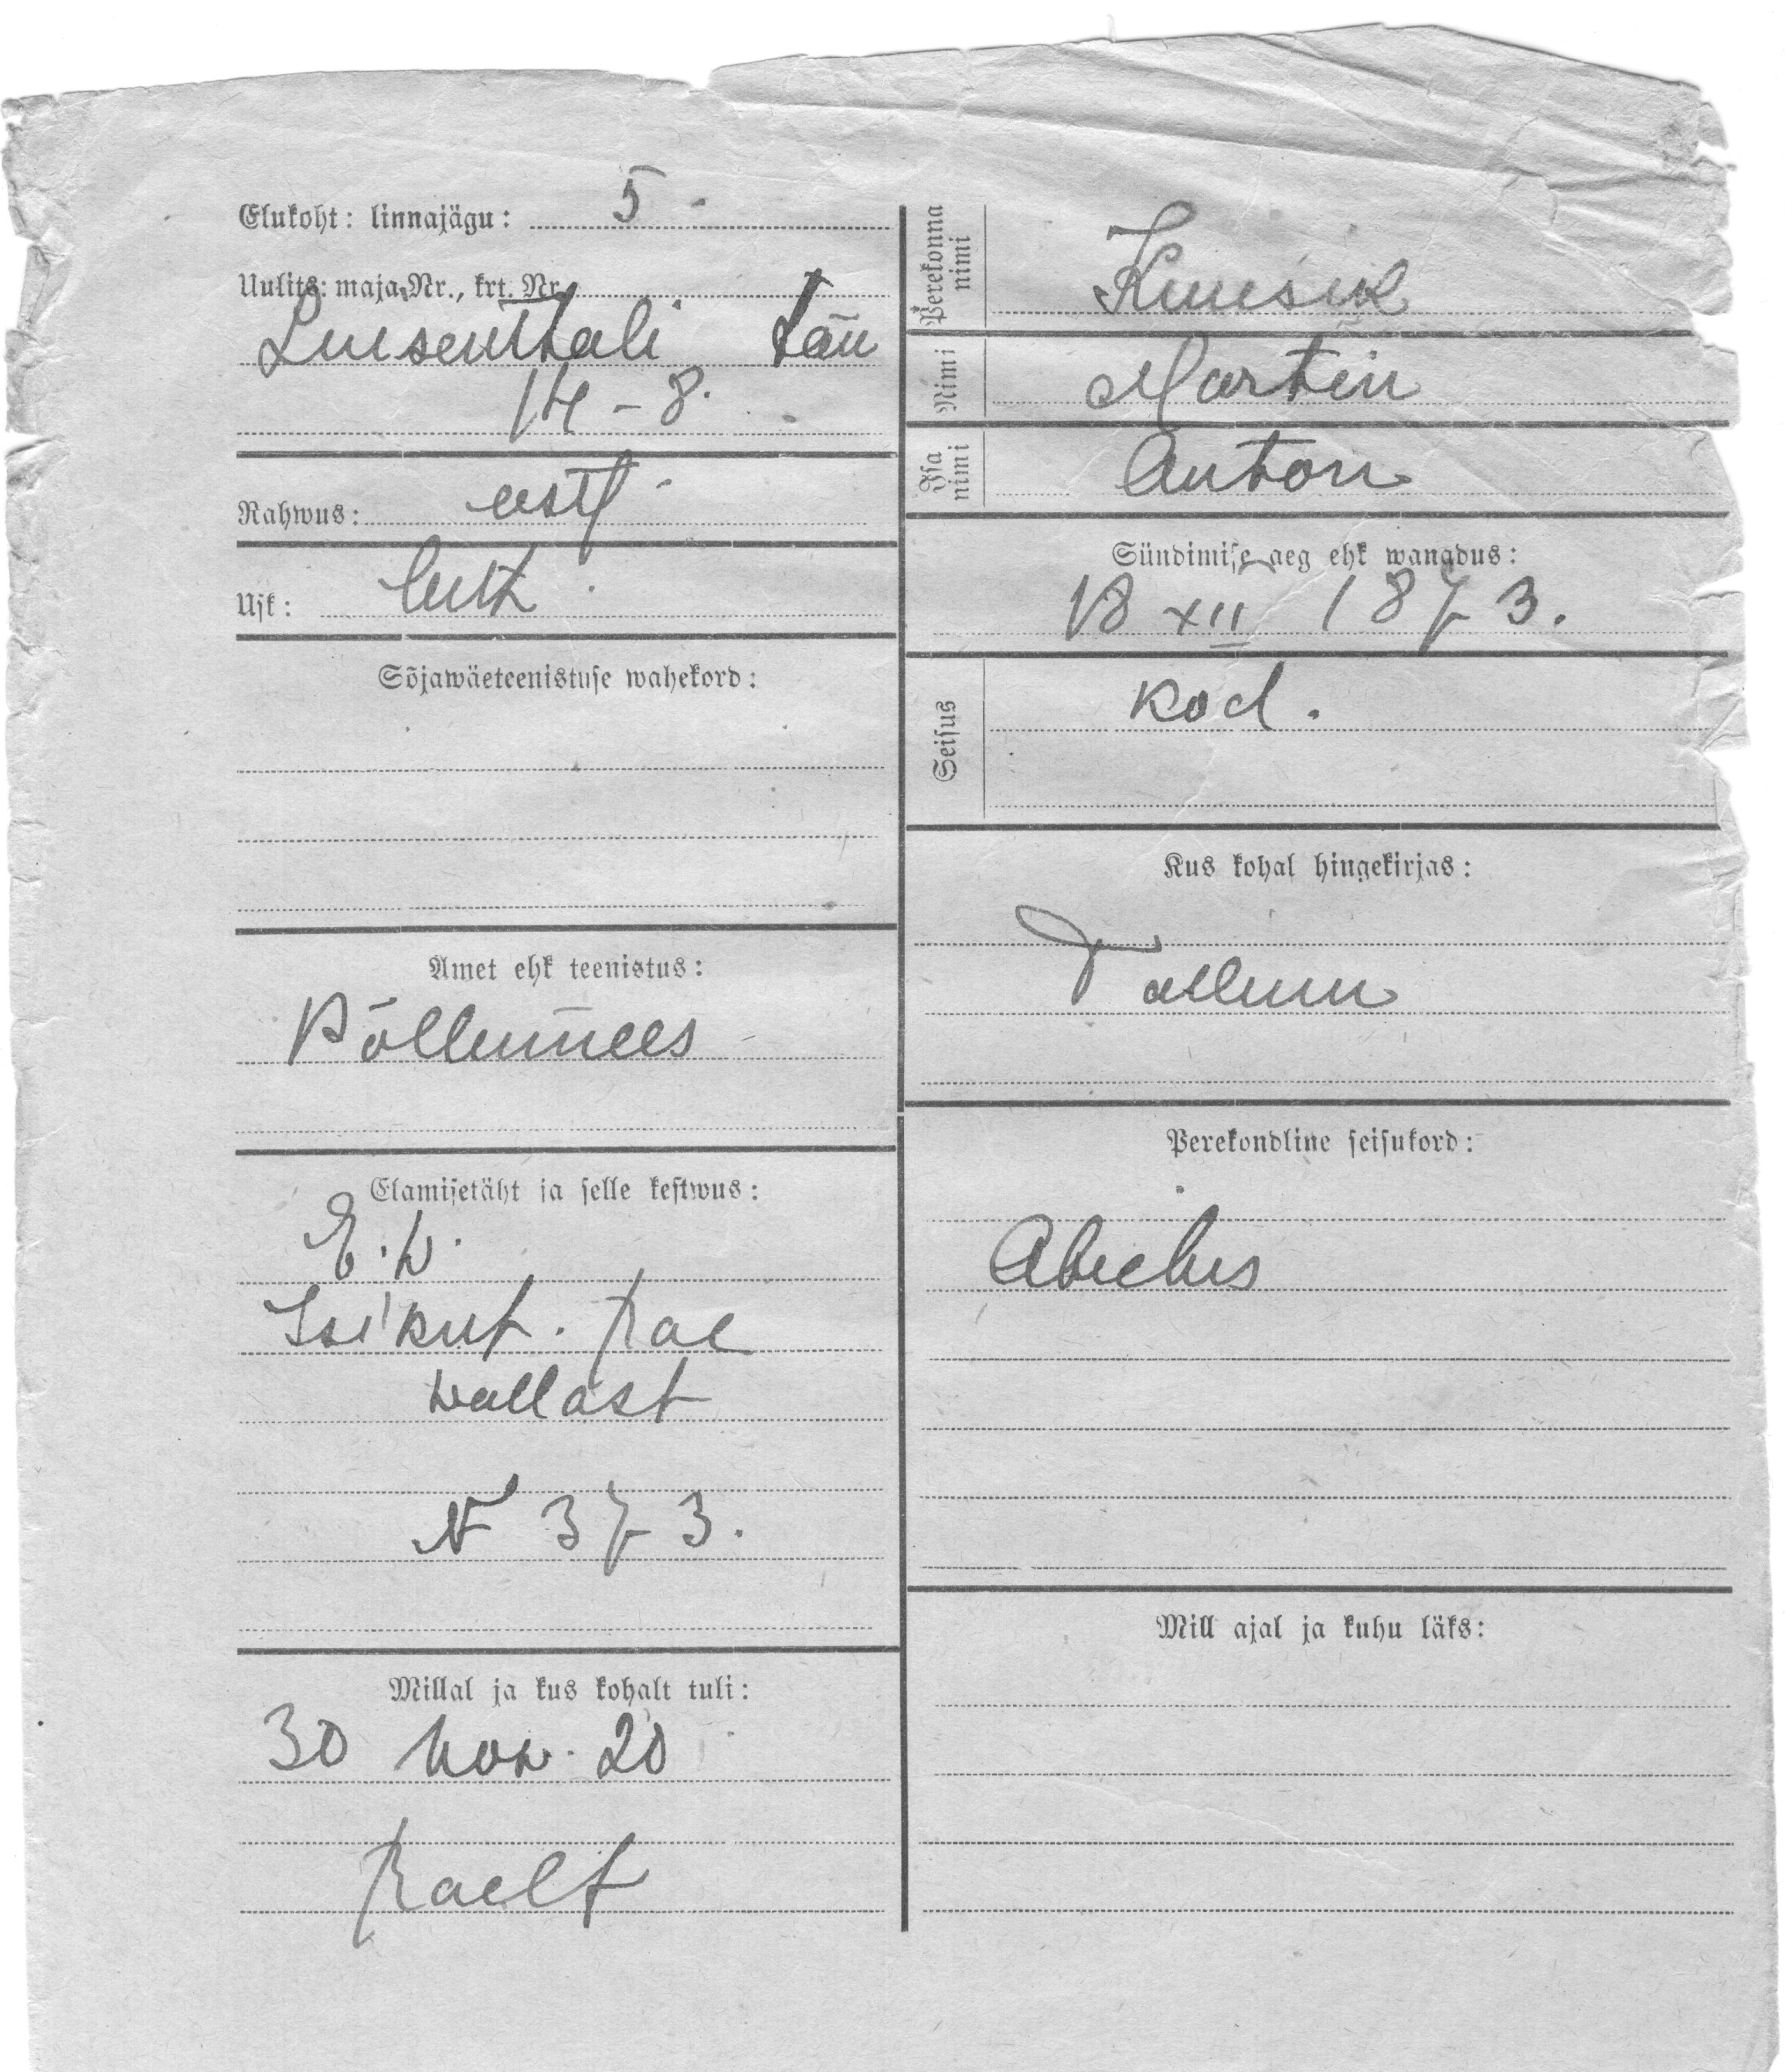 Elukoht: linnajägu: 5
Uulits: maja Nr., krt. Nr.
Luisenthali tän
14 - 8.
Rahwus: eestl
Usk: luth.
Sõjawäeteenistuse wahekord:
Amet ehk teenistus:
Põllumees
Elamisetäht ja selle kestwus:
E.W.
Isikut. Rae
wallast
N 373.
Millal ja kus kohalt tuli:
30 nov. 20
Raelt
Perekonna nimi
Kuusik
Nimi Martin
Isa nimi Anton
Sündimise aeg ehk wanadus:
18 XII 1873.
Seisus kod.
Kus kohal hingekirjas:
Tallinn
Perekondline seisukord:
Abielus
Mill ajal ja kuhu läks: